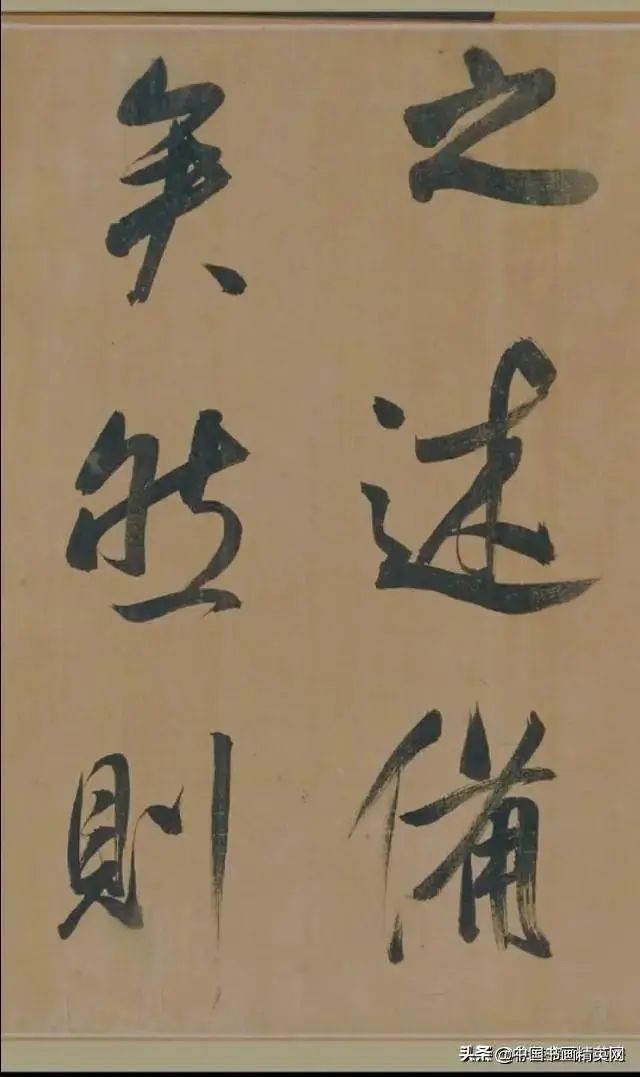 之述備
矣然則
头条 @中国书画精英网